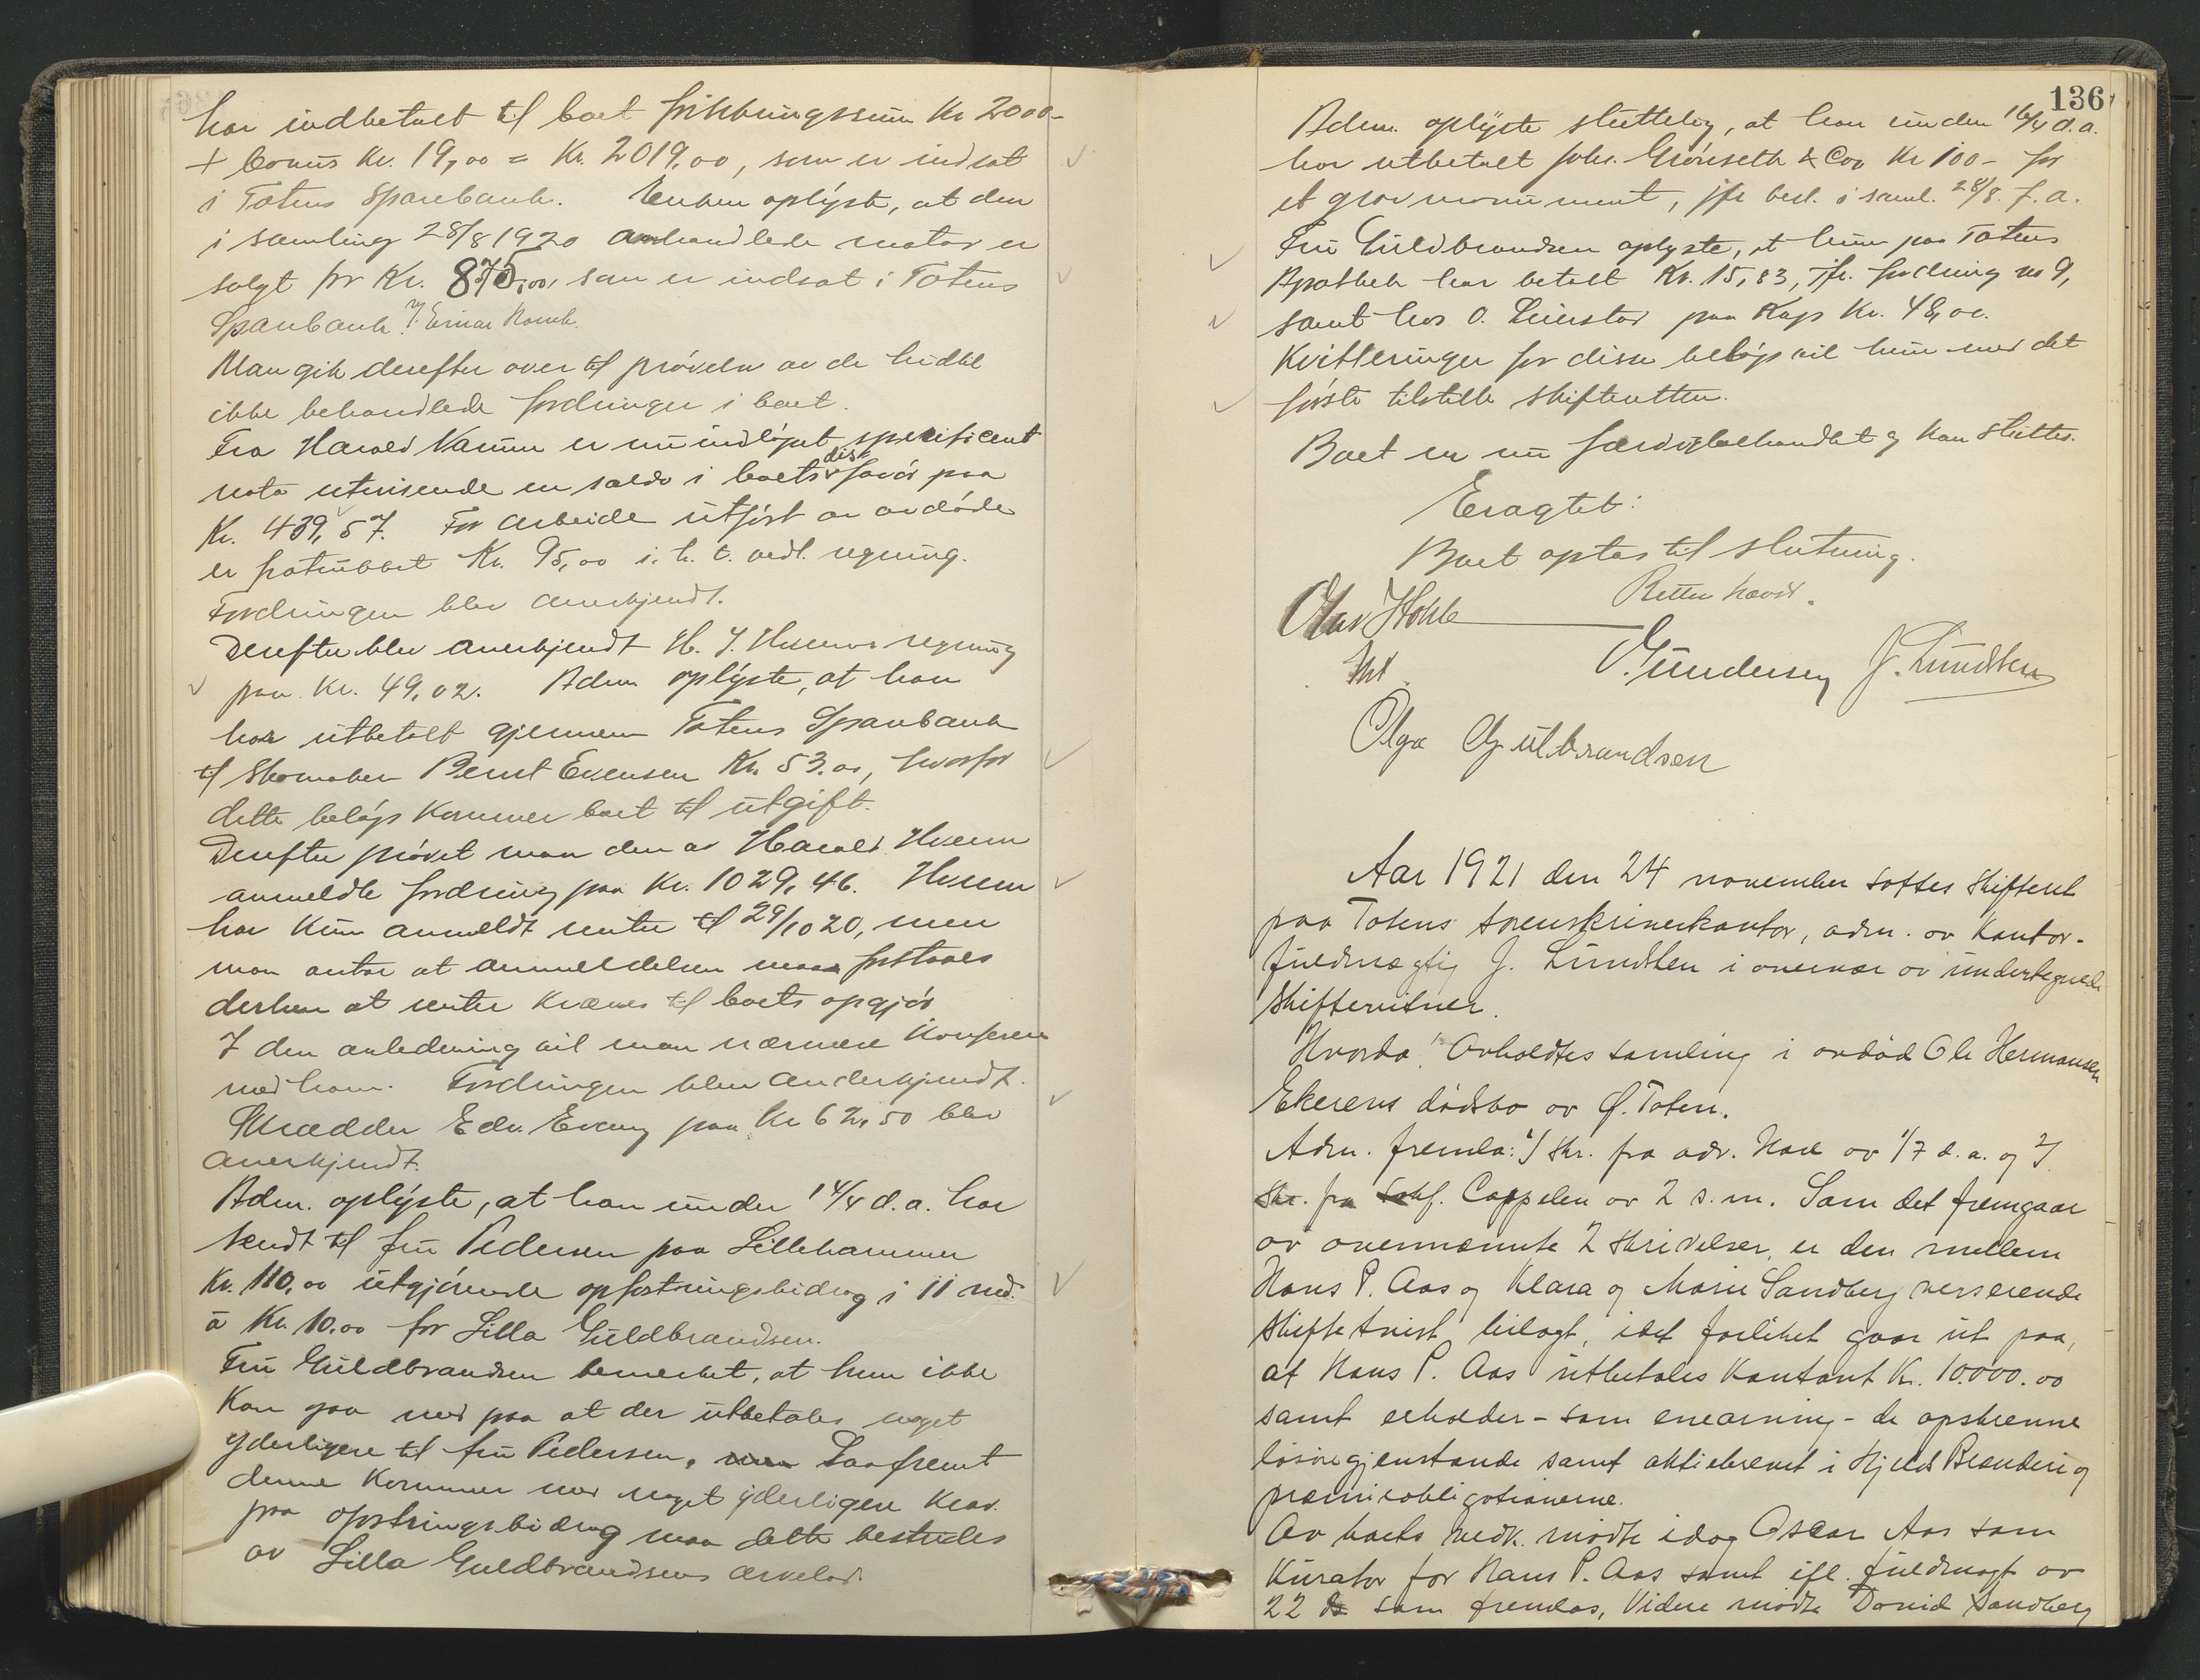 har indbetalt til boet forsikringssum Kr 2000-
+ bonus Kr. 19,00 = Kr. 2019,00, som er indsat
i Totens Sparebank. Enken oplyste, at den
i samling 28/8 1920 omhandlede motor er
solgt for Kr. 875,00, som er indsat i Totens
Sparebank
Man gik derefter over til prøvelse av de hidtil
ikke behandlede fordringer i boet.
Fra Harald er nu indløpet specificert
nota utvisende en saldo i boets disfavør paa
Kr. 439,57. For arbeide utført av avdøde
er fratrukket Kr. 95,00 i. h. t. vedl. regning.
Fordringen blev anerkjendt.
Derefter blev anerkjendt H. J. regning
paa Kr. 49,02. Adm. oplyste, at han
har utbetalt gjennem Totens Sparebank
til Skomaker Bernt Evensen Kr. 53.00, hvorfor
dette beløp kommer boet til utgift.
Derefter prøvet man den av Harald
anmeldte fordring paa Kr. 1029,46.
har kun anmeldt renter til 29/10 20, men
man antar at anmeldelsen maa forstaaes
derhen at renter kræves til boets opgjør
I den anledning vil man nærmere konferere
med ham. Fordringen blev anderkjendt.
Skrædder Edv. Evang paa Kr 62,50 blev
anerkjendt.
Adm. oplyste, at han under 14/4 d.a. har
sendt til fru Pedersen paa Lillehammer
Kr. 110,00 utgjørende opfostringsbidrag i 11 md.
à Kr. 10.00 for Lilla Guldbrandsen.
Fru Guldbrandsen bemerket, at hun ikke
kan gaa med paa at der utbetales noget
yderligere til fru Pedersen, Saafremt
denne kommer med noget yderligere krav
paa opfostringsbidrag maa dette bestrides
av Lilla Guldbrandsens arvelod.
136
Adm. oplyste sluttelig, at han under 16/4 d.a.
har utbetalt Johs. Grønseth & Co Kr 100- for
et gravmonument, jfr besl. i saml. 28/8. f.a.
Fru Guldbrandsen oplyste, at hun paa Totens
Apothek har betalt Kr. 15,83, jfr. fordring no 9,
samt hos O. paa Kapp Kr. 48,00.
Kvitteringer for disse beløp vil hun med det
første tilstille skifteretten.
Boet er nu færdigbehandlet og kan sluttes.
Eragtet:
Boet optas til slutning.
Retten hævet.
Gundersen J. Lundsten
Olga Gulbrandsen
Aar 1921 den 24 november sattes skifteret
paa Totens sorenskriverkontor, adm. av kontor-
fuldmægtig J. Lundsten i overvær av undertegnede
skiftevitner.
Hvorda: Avholdtes samling i avdød Ole Hermansen
Ekerens dødsbo av Ø. Toten.
Adm. fremla: 1/ skr. fra adv. Hoel av 1/7 d.a. og 2/
skr. fra Cappelen av 2 s.m. Som det fremgaar
av ovennævnte 2 skrivelser, er den mellem
Hans P. Aas og Klara og Marie Sandberg verserende
skiftetvist bilagt, idet forliket gaar ut paa,
at Hans P. Aas utbetales kontant Kr. 10.000.00
samt erholder - som enearving - de opskrevne
løsøregjenstande samt aktiebrevet i Brænderi og
præmieobligationerne.
Av boets vedk. møtte idag Oscar Aas som
kurator for Hans P. Aas samt ifl. fuldmagt av
22 ds som fremlas, Videre møtte David Sandberg